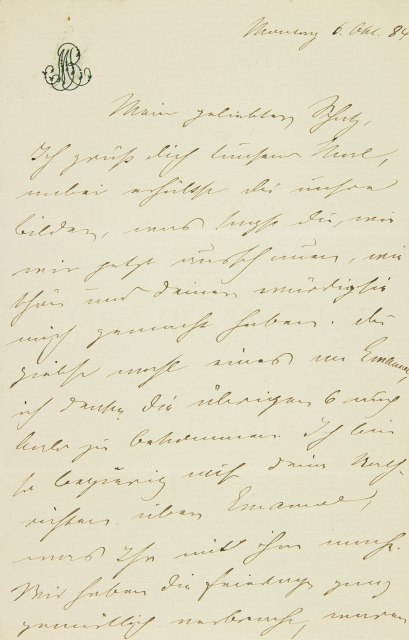 Montag 6. Okt. 84
Mein geliebter Schatz,
Ich grüß dich tausend Mal,
anbei erhältst du unsre
Bilder, was sagst du, wie
wir jetzt ausschauen, wie
schön und deiner würdig sie
mich gemacht haben. Du
giebst wohl eines an Emanuel,
ich denke die übrigen 6 auch
bald zu bekommen. Ich bin
so begierig auf deine Nach-
richten über Emanuel,
was Ihr mit ihm macht.
Wir haben die Feiertage ganz
gemütlich verbracht, waren